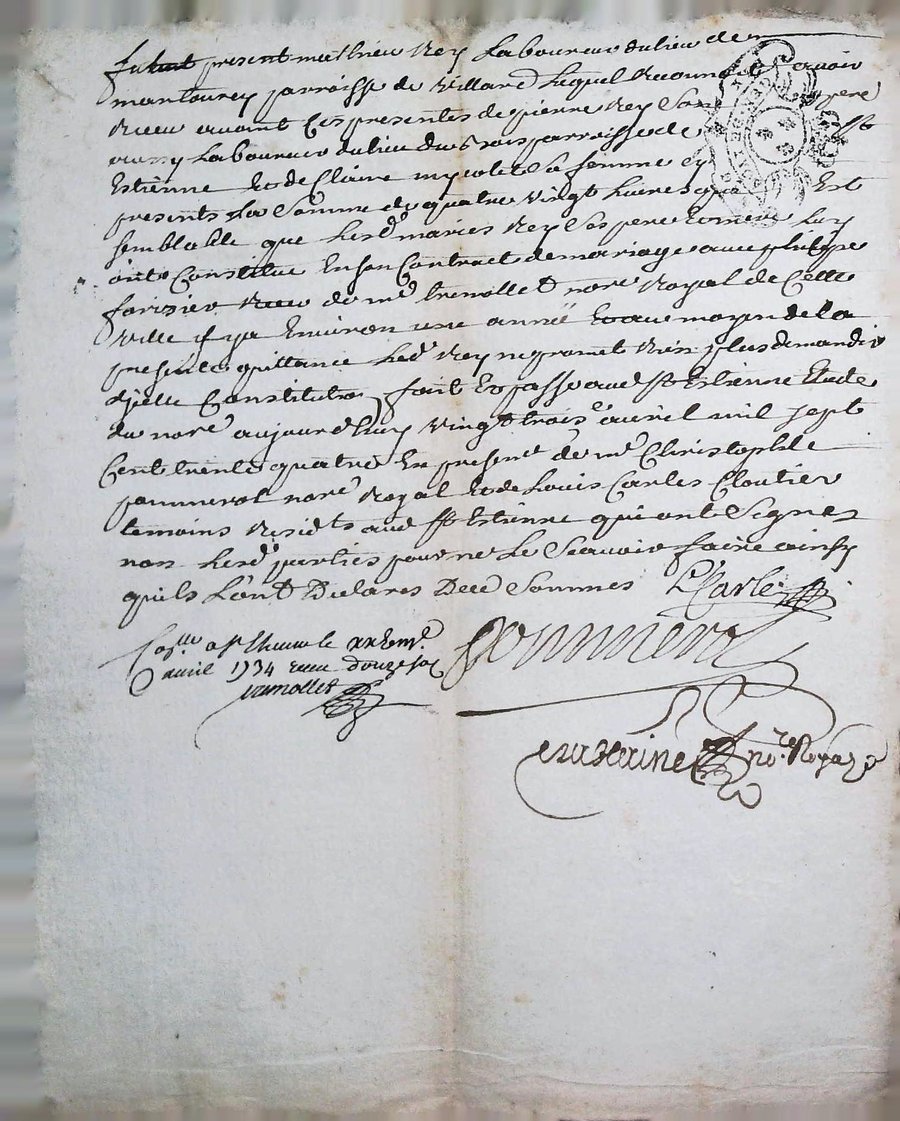 fut present mathieu Rey Laboureur du lieu de
parroisse de Villard Lequel Recounoit avoir
Receu avant Ces presentes de pierre Rey Son pere
aussy Laboureur du lieu du parroisse de St
Estienne Et de Claire sa femme cy
presents La Somme de quatre Vingt Livres Est
semblable que Lesd maries Rey Ses pere Et mere Luy
ont Constitué En son Contract de mariage avec philippe
forizier Receu de me tremollet nore Royal de Cette
Ville il ya Environ une année Et au moyen de la
presente quittance Led Rey ne promet Rien plus demander
d'jcelle Constitution fait Et passé aud St Estienne Etude
du nore aujourdhuy Vingt trois avril mil sept
Cent trente quatre En presence de me Christophle
pommerol nore Royal Et de Louis Carles Cloutier
temoins Residts aud St Estienne qui ont Signés
non Lesd parties pour ne Le Scavoir faire ainsy
quils L'ont Declarés De ce Sommés L Carle
le xxvme
avril 1734 receu douze sols
tramollet
Pommerol
nore Royal